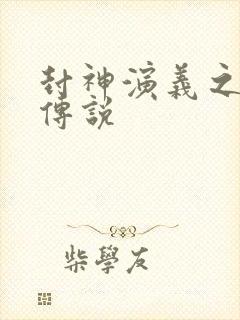 封神演義之
傳說
柴學友